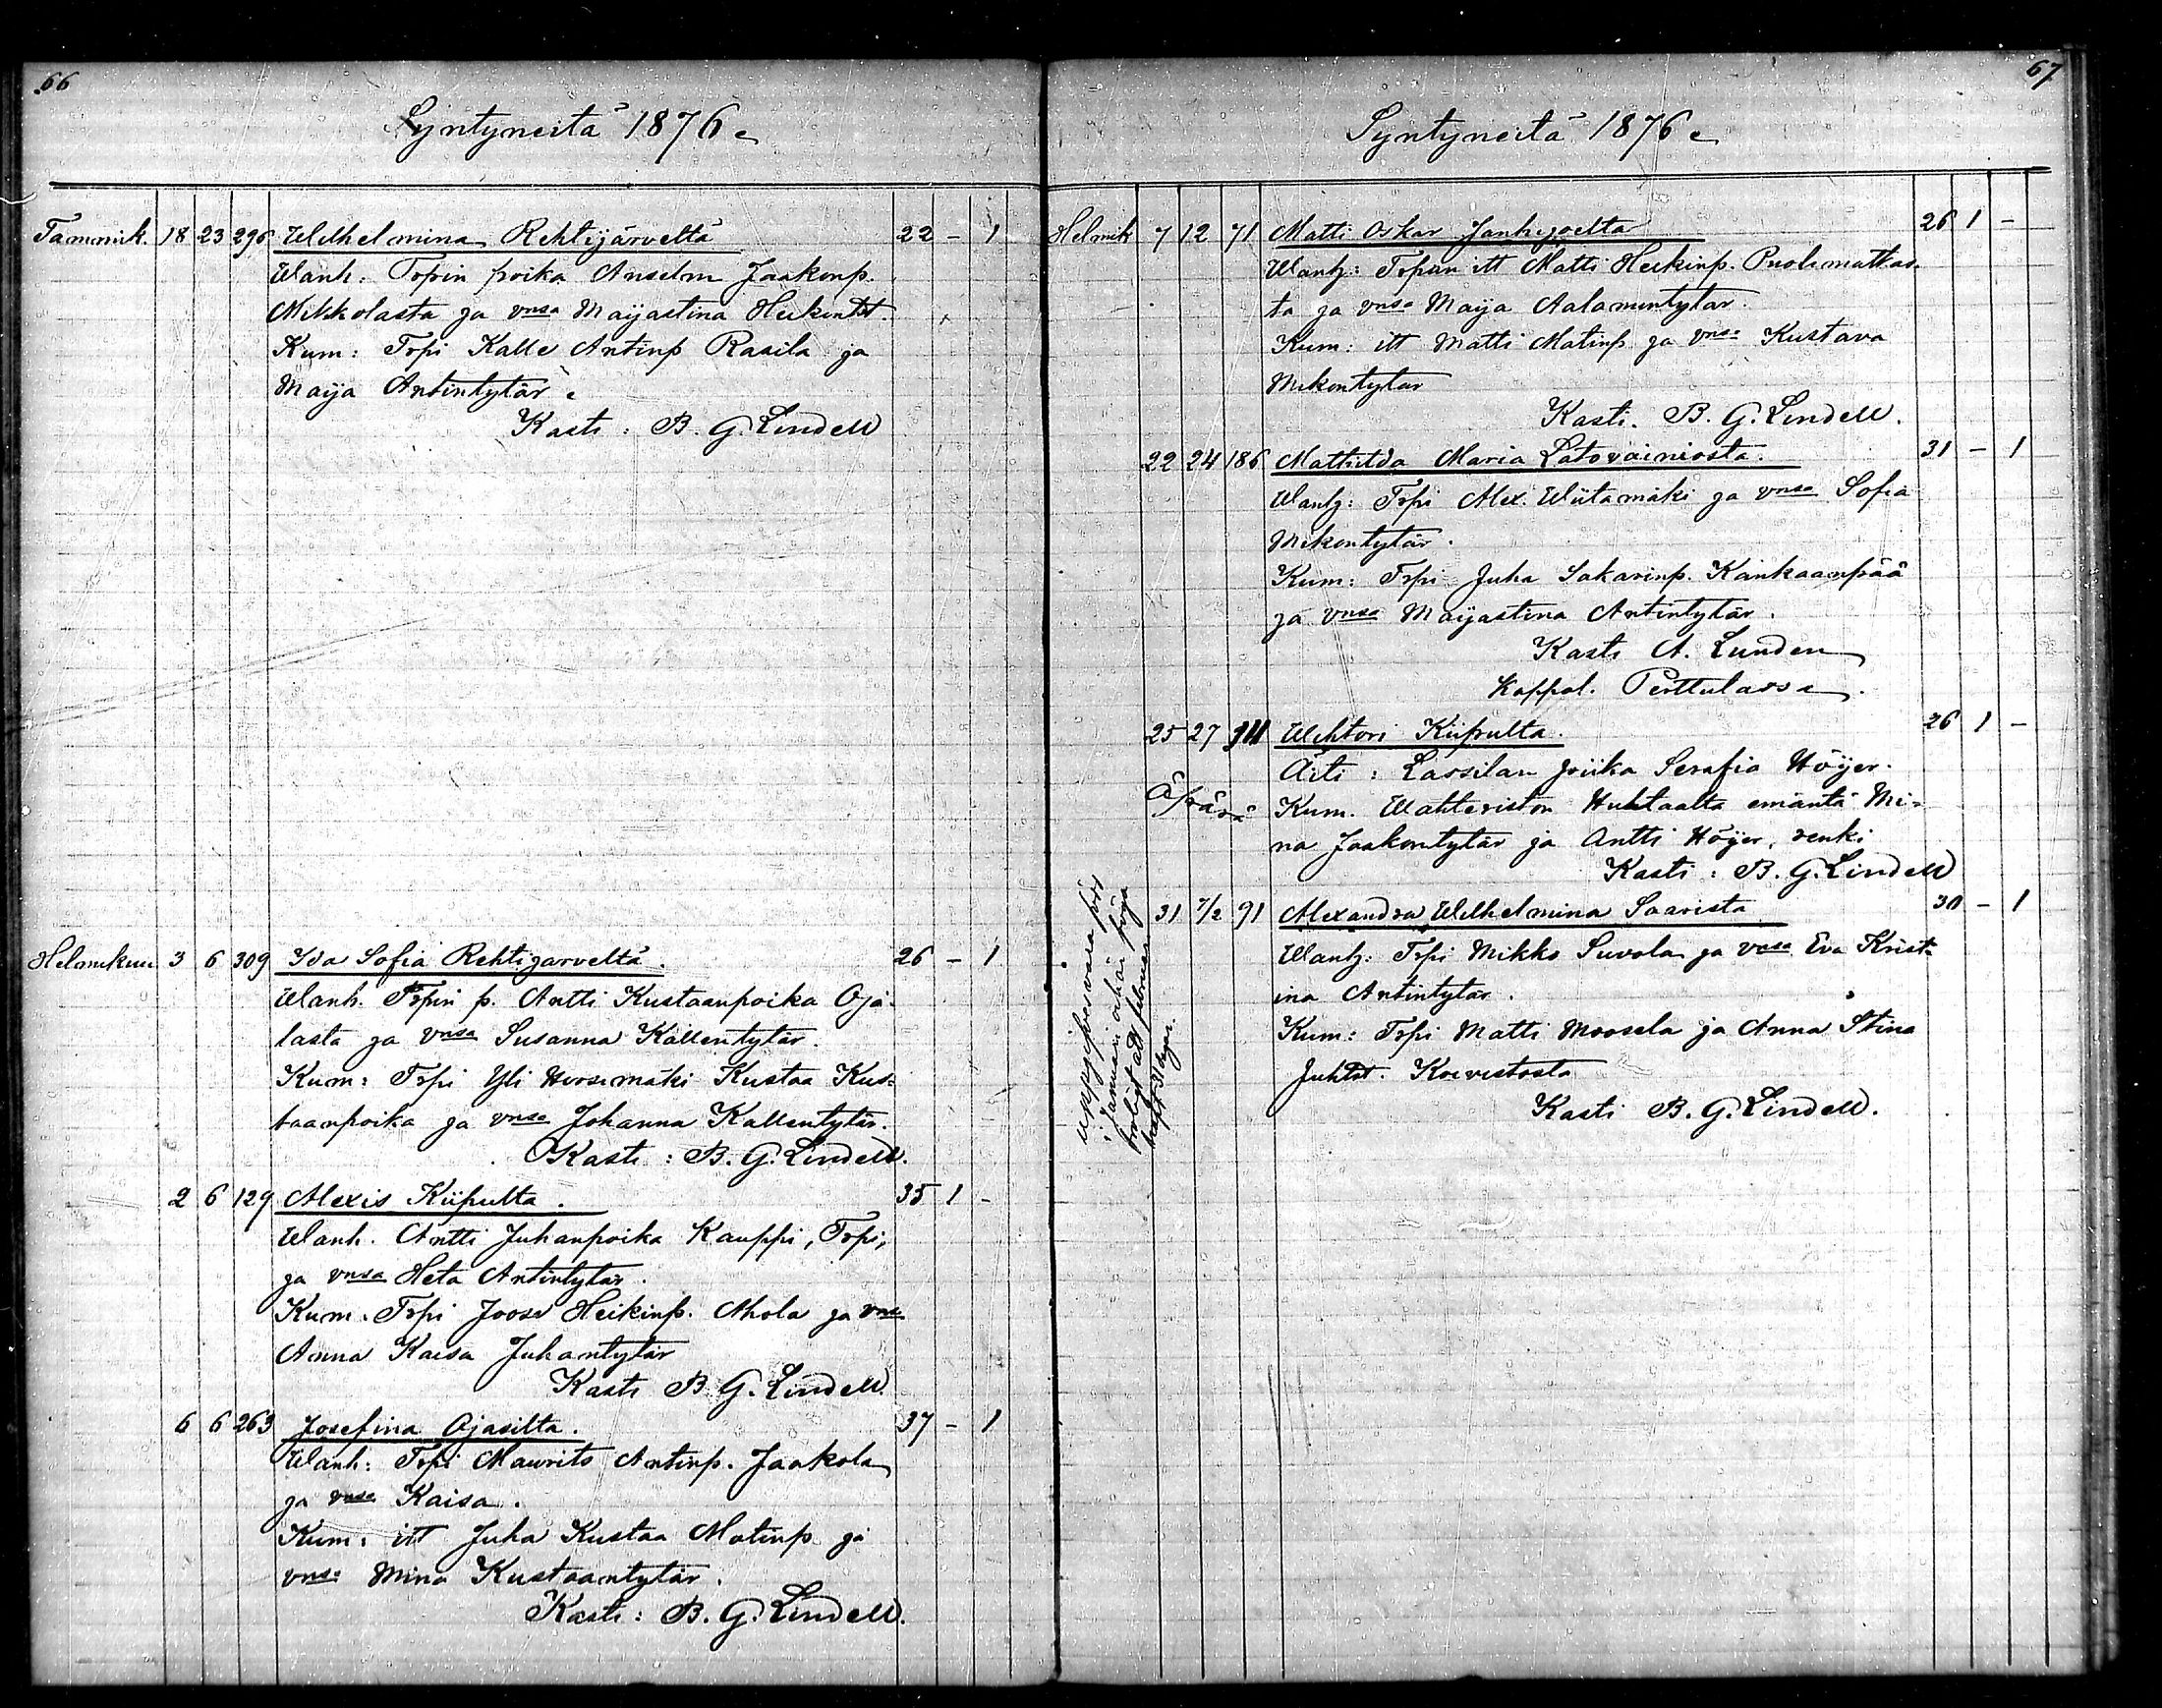 66
Syntyneitä 1876.
Tammik. 18 23 296 Wilhelmina Rehtijärveltä 22 - 1
Wanh: Torpin poika Anselm Jaakonp.
Mikkolasta ja vnsa Maijastina Heikintt.
Kum: Trpi Kalle Antinp Rasila ja
Maija Antintytär.
Kasti: B. G. Lindell
Helmikuu 3 6 309 Ida Sofia Rehtijärveltä. 26 - 1
Wanh. Trpin p. Antti Kustaanpoika Oja-
lasta ja vnsa Susanna Kallentytär.
Kum: Trpi Yli Hirsimäki Kustaa Kus-
taanpoika ja vnsa Johanna Kallentytär.
Kasti: B. G. Lindell.
2 6 129 Alexis Kiipulta. 35 1 -
Wanh. Antti Juhanpoika Kauppi, Trpi,
ja vnsa Heta Antintytär.
Kum. Trpi Joose Heikinp. Ahola ja vnsa
Anna Kaisa Juhantytär
Kasti B. G. Lindell
6 6 263 Josefina Ojasilta. 37 - 1
Wanh: Trpi Maurits Antinp. Jaakola
ja vnsa Kaisa.
Kum: itt Juha Kustaa Matinp ja
vnsa Mina Kustaantytär.
Kasti: B. G. Lindell.
67
Syntyneitä 1876
Helmik 7 12 71 Matti Oskar Janhijoelta 26 1 -
Wanh: Trpän itt Matti Heikinp. Puolimattas-
ta ja vnsa Maija Aatamintytär.
Kum: itt Matti Matinp ja vnsa Kustava
Mikontytär
Kasti. B. G. Lindell.
22 24 186 Mathilda Maria Latovainiosta. 31 - 1
Wanh: Trpi Alex. Wiitamäki ja vnsa Sofia
Mikontytär.
Kum: Trpi Juha Sakarinp. Kankaanpää
ja vnsa Maijastina Antintytär.
Kasti A. Lunden
Kappal. Perttulassa.
25 27 Wihtori Kiipulta. 26 1 -
Äiti: Lassilan piika Serafia Höijer.
Äpärä Kum. Wahteriston Huhtaalta emäntä Mi-
na Jaakontytär ja Antti Höijer, renki
Kasti: B. G. Lindell
31 7/2 91 Alexandra Wilhelmina Saarista 30 - 1
Wanh: Trpi Mikko Suvola ja vnsa Eva Krist-
ina Antintytär.
Kum: Trpi Matti Moosela ja Anna Stina
Juhtt. Koivistosta
Kasti B. G. Lindell.
uppgifves vara född
i Januari och är
att februari
haft 31 dagar.